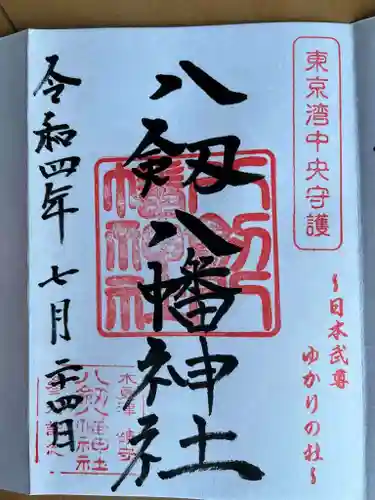 東京湾中央守護
~日本武尊
ゆかりの社~
八剱八幡神社
木更津 鎮守
八剱八幡神社
令和四年 七月 二十四日